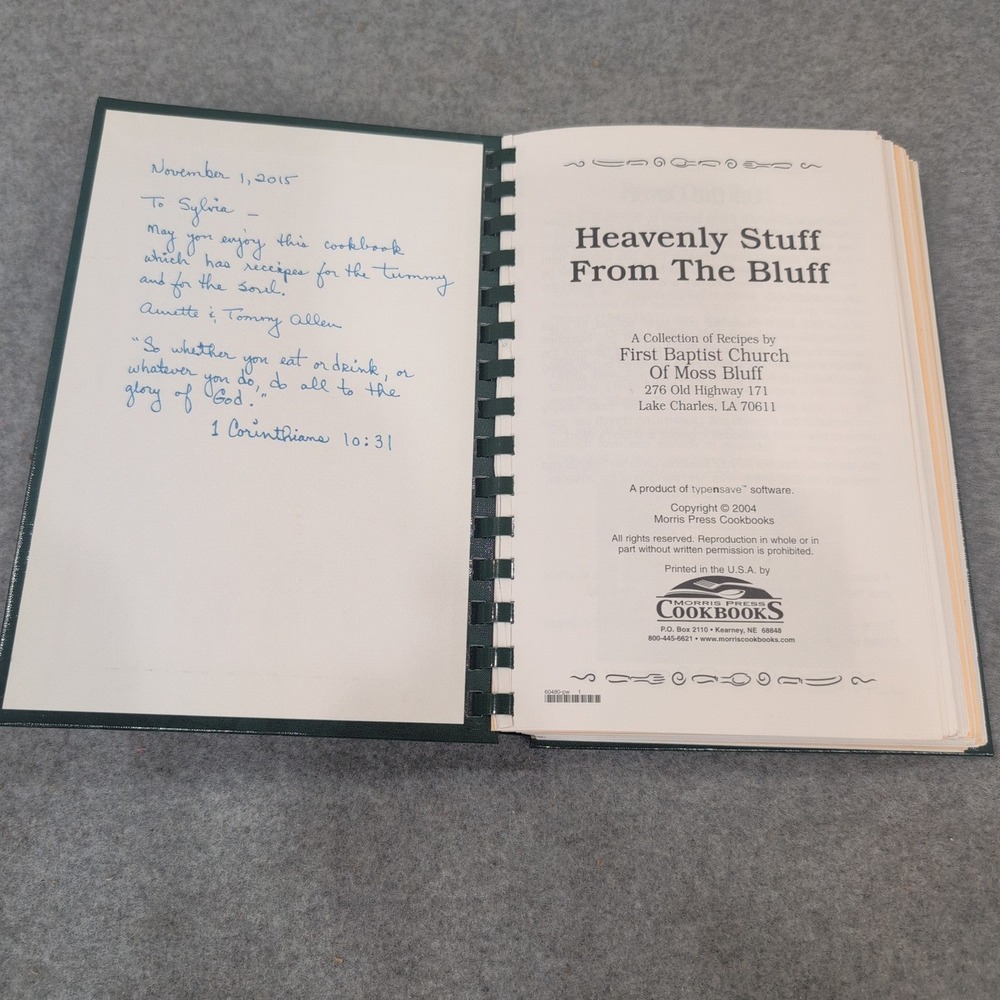 November 1, 2015
To Sylvia –
May you enjoy this cookbook
which has receipes for the tummy
and for the soul.
Annette & Tommy Allen
"So whether you eat or drink, or
whatever you do, do all to the
glory of God."
1 Corinthians 10:31
Heavenly Stuff
From The Bluff
A Collection of Recipes by
First Baptist Church
Of Moss Bluff
276 Old Highway 171
Lake Charles, LA 70611
A product of typensave™ software.
Copyright © 2004
Morris Press Cookbooks
All rights reserved. Reproduction in whole or in
part without written permission is prohibited.
Printed in the U.S.A. by
MORRIS PRESS
COOKBOOKS
P.O. Box 2110 • Kearney, NE 68848
800-445-6621 • www.morriscookbooks.com
60480-pw 1